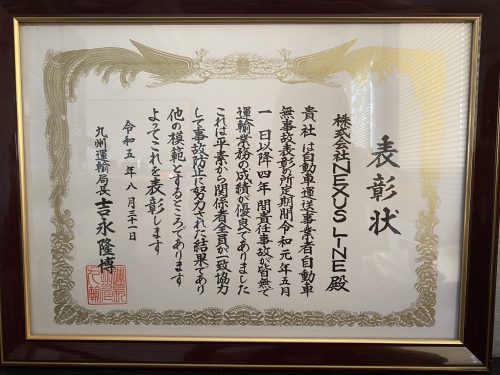 表彰状
株式会社NEXUS LINE殿
貴社は自動車運送事業者自動車
無事故表彰の所定期間令和元年五月
一日以降四年間責任事故が皆無で
運輸業務の成績が優良でありました
これは平素から関係者全員が一致協力
して事故防止に努力された結果であり
他の模範とするところであります
よってこれを表彰します
令和五年八月三十一日
九州運輸局長 吉永隆博